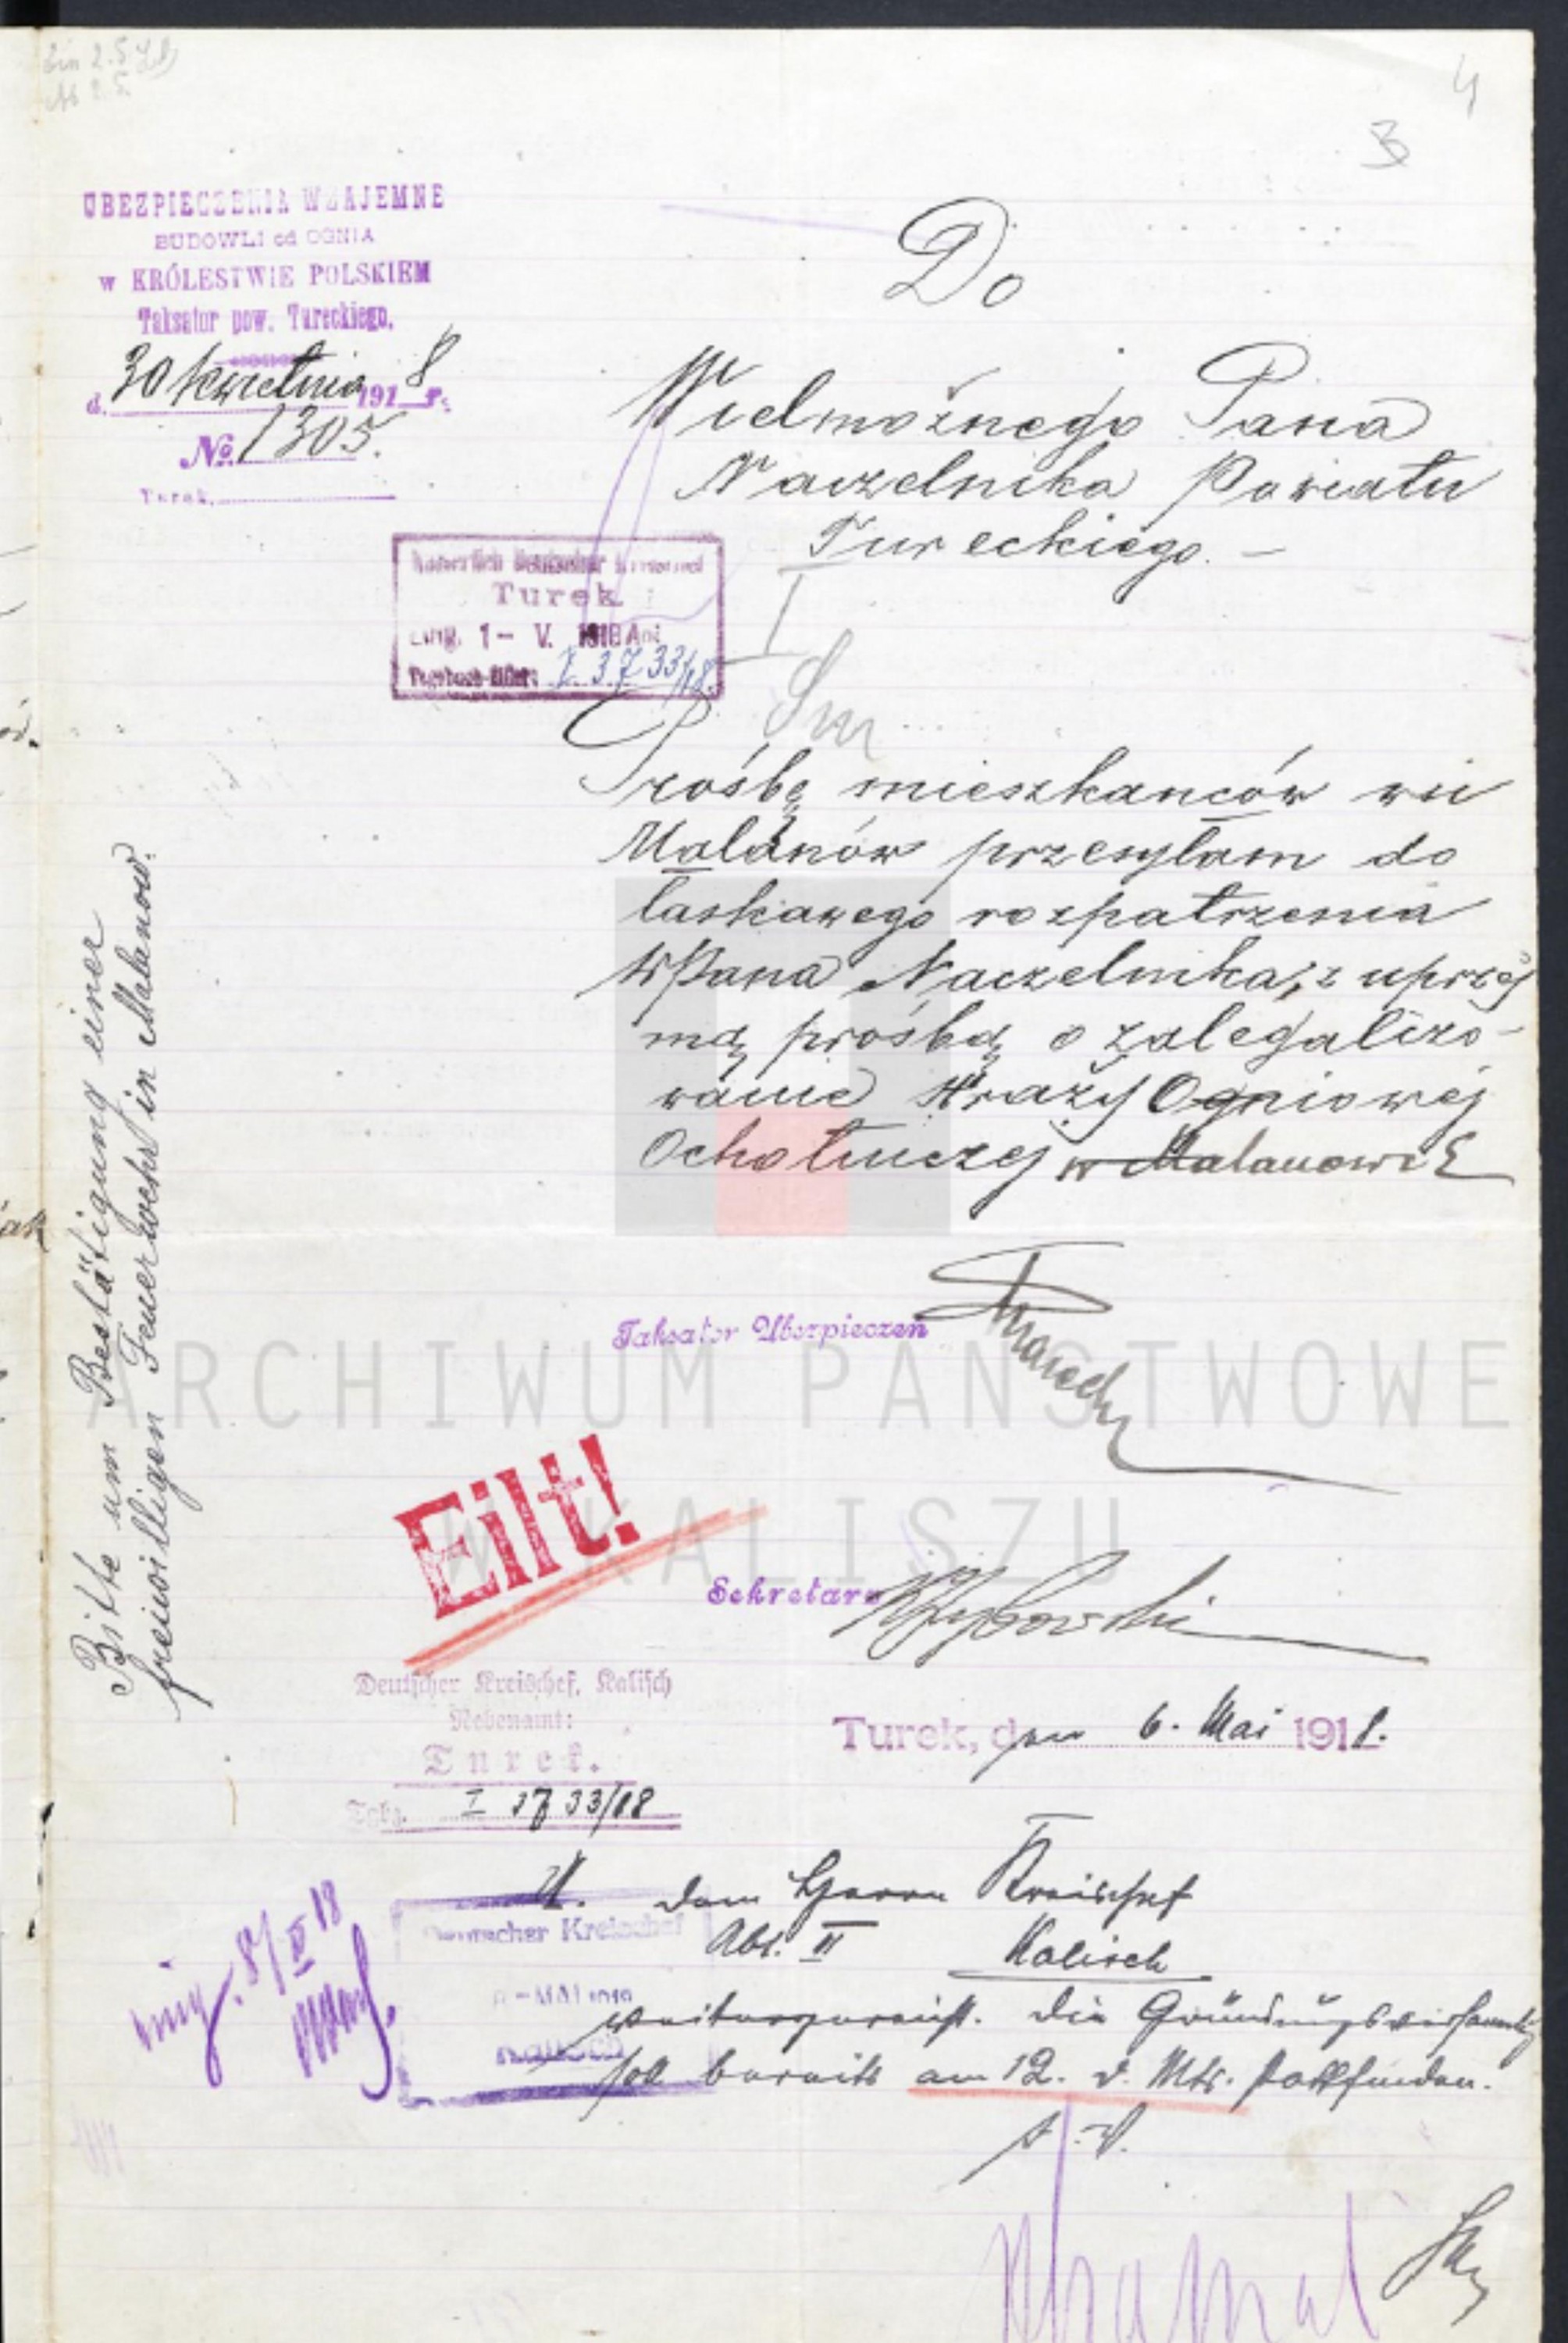 4
3
UBEZPIECZENIA WZAJEMNE
BUDOWLI od OGNIA
w KRÓLESTWIE POLSKIEM
Taksator pow. Tureckiego.
d. 30 kwietnia 1918 r.
No. 1305.
Turek,
Do
Wielmożnego Pana
Naczelnika Powiatu
Tureckiego. –
Turek
1 – V. 1918
I. 3733/18.
Prośbę mieszkańców wsi
Malanów przesyłam do
łaskawego rozpatrzenia
WPana Naczelnika, z uprzej
mą prośbą o zalegalizo-
wanie Straży Ogniowej
Ochotniczej w Malanowie
Bitte um Bestätigung einer
freiwilligen Feuerwehr in Malanow.
Taksator Ubezpieczeń
Eilt!
Sekretarz
ARCHIWUM PAŃSTWOWE
W KALISZU
Deutscher Kreischef, Kalisch
Nebenamt:
Turek.
Tgb. I 3733/18
Turek, den 6. Mai 1918.
U. dem Herrn Kreischef
Abt. II Kalisch
weitergereicht. Die Gründungsversammlg
soll bereits am 12. d. Mts. stattfinden.
Deutscher Kreischef
Kalisch